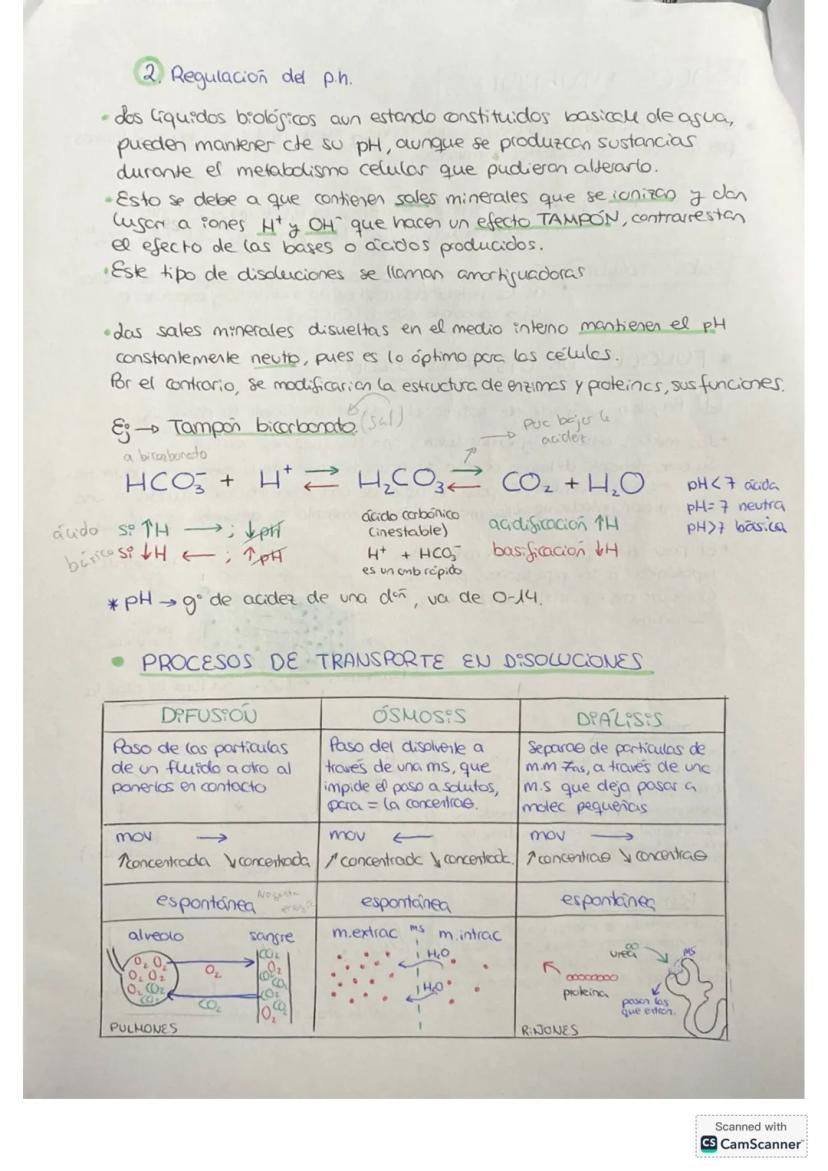 2. Regulación del p.h.
• Los líquidos biológicos aun estando constituidos basicam de agua,
pueden mantener cte su pH, aunque se produzcan sustancias
durante el metabolismo celular que pudieran alterarlo.
• Esto se debe a que contienen sales minerales que se ionizan y dan
lugar a iones H⁺ y OH⁻ que hacen un efecto TAMPÓN, contrarrestan
el efecto de las bases o ácidos producidos.
• Este tipo de disoluciones se llaman amortiguadoras
• Las sales minerales disueltas en el medio interno mantienen el pH
constantemente neutro, pues es lo óptimo para las células.
Por el contrario, se modificarían la estructura de enzimas y proteínas, sus funciones.
Ej → Tampón bicarbonato (sal)
→ que baje la
acidez
a bicarbonato
HCO₃⁻ + H⁺ ⇄ H₂CO₃ ⇄ CO₂ + H₂O
pH<7 ácida
pH=7 neutra
pH>7 básica
ácido si ↑H → ; ↓pH
básico si ↓H ← ; ↑pH
ácido carbónico
(inestable)
H⁺ + HCO₃⁻
es un cmb rápido
acidificación ↑H
basificación ↓H
* pH → gº de acidez de una dºn, va de 0-14.
• PROCESOS DE TRANSPORTE EN DISOLUCIONES
DIFUSIÓN
Paso de las partículas
de un fluido a otro al
ponerlos en contacto
mov →
↑concentrada ↓concentrada
espontánea
No gasta
alveolo sangre
O₂ O₂
O₂ O₂
O₂ CO₂
CO₂
O₂
CO₂
CO₂
O₂
CO₂
CO₂
CO₂
O₂
PULMONES
ÓSMOSIS
Paso del disolvente a
través de una ms, que
impide el paso a solutos,
para = la concentrae.
mov ←
↑concentrade ↓concentrade.
espontánea
m.extrac ms m.intrac
H₂O
H₂O
DIÁLISIS
Separae de partículas de
m.m ≠ns, a través de una
M.S que deja pasar a
molec pequeñas
mov →
↑concentrae ↓concentrae
espontánea
urea
MS
proteina
pasan las
que entran.
RIÑONES
Scanned with
CS CamScanner